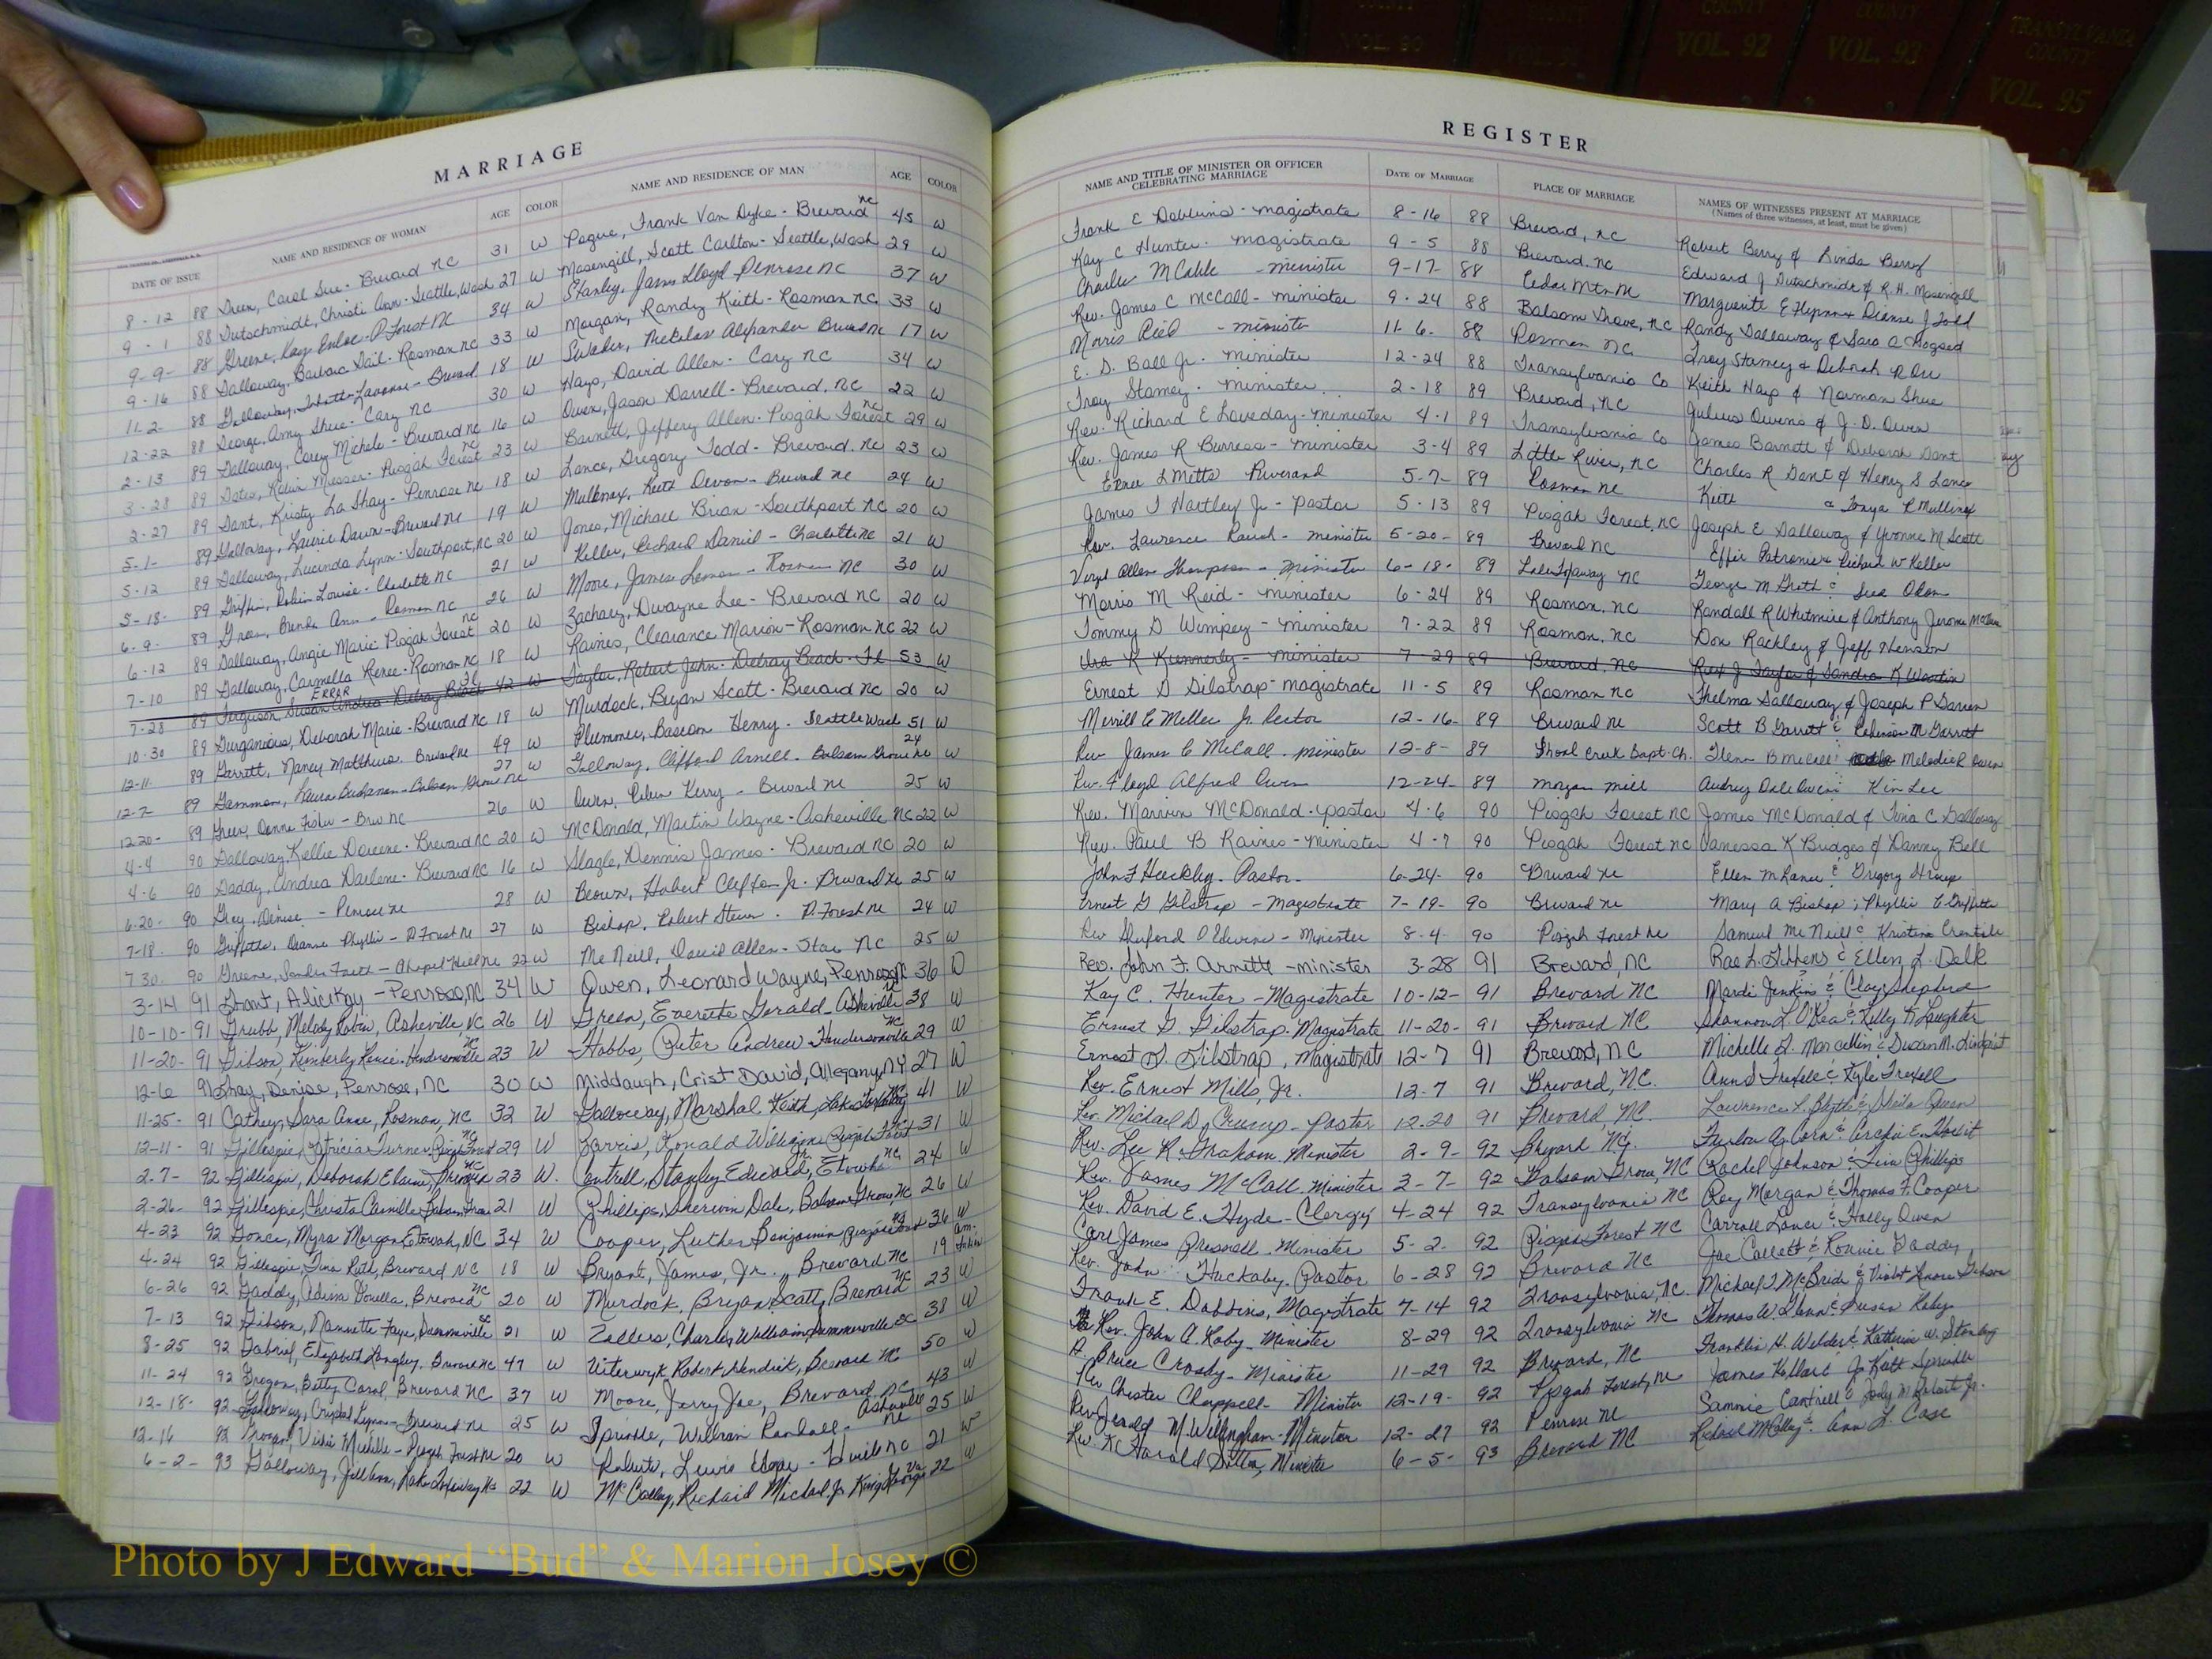 COUNTY
VOL. 90
COUNTY
VOL. 92
COUNTY
VOL. 93
TRANSYLVANIA
COUNTY
VOL. 95
MARRIAGE
DATE OF ISSUE NAME AND RESIDENCE OF WOMAN AGE COLOR NAME AND RESIDENCE OF MAN AGE COLOR
8-12 88 Green, Carol Sue - Brevard NC 31 W Pogue, Frank Van Dyke - Brevard NC 45 W
9-1 88 Gutschmidt, Christi Ann - Seattle, Wash 27 W Masengill, Scott Carlton - Seattle, Wash 29 W
9-9- 88 Greene, Kay Enloe - P. Forest NC 34 W Stanley, James Lloyd Penrose NC 37 W
9-16 88 Galloway, Barbara Gail - Rosman NC 33 W Morgan, Randy Keith - Rosman NC 33 W
11-2- 88 Galloway, Lavonne - Brevard 18 W Alexander Brevard NC 17 W
12-22 88 George, Amy Shue - Cary NC 30 W Hays, David Allen - Cary NC 34 W
2-13 89 Galloway, Corey Michele - Brevard NC 16 W Owen, Jason Darrell - Brevard, NC 22 W
3-28 89 Messer - Pisgah Forest NC 23 W Barnett, Jeffery Allen - Pisgah Forest NC 29 W
2-27 89 Gant, Kristy La Shay - Penrose NC 18 W Lance, Gregory Todd - Brevard, NC 23 W
5-1- 89 Galloway, Laurie Dawn - Brevard NC 19 W Mullinax, Keith Devon - Brevard NC 24 W
5-12 89 Galloway, Lucinda Lynn - Southport, NC 20 W Jones, Michael Brian - Southport NC 20 W
5-18- 89 Griffin, Robin Louise - Charlotte NC 21 W Keller, Richard Daniel - Charlotte NC 21 W
6-9- 89 Brenda Ann - Rosman NC 26 W Moore, James - Rosman NC 30 W
6-12 89 Galloway, Angie Marie Pisgah Forest NC 20 W Zachary, Dwayne Lee - Brevard NC 20 W
7-10 89 Galloway, Carmella Renee - Rosman NC 18 W Raines, Clearance Marion - Rosman NC 22 W
ERROR
7-28 89 Ferguson, Susan Andrea - Delray Beach Fl 42 W Taylor, Robert John - Delray Beach - Fl 53 W
10-30 89 Gurganious, Deborah Marie - Brevard NC 18 W Murdock, Bryan Scott - Brevard NC 20 W
12-11- 89 Garrett, Nancy Matthews. Brevard NC 49 W Plummer, Bascom Henry - Seattle Wash 51 W
12-7- 89 Gammon, Laura Buchanan - Balsam Grove NC 27 W Galloway, Clifford Arnell - Balsam Grove NC 24 W
12-20- 89 Green, Donna Fisher - Brev NC 26 W Owen, Kerry - Brevard NC 25 W
4-4 90 Galloway, Kellie Doreene - Brevard NC 20 W McDonald, Martin Wayne - Asheville NC 22 W
4-6 90 Gaddy, Andrea Darlene - Brevard NC 16 W Slagle, Dennis James - Brevard NC 20 W
6-20- 90 Denise - Penrose NC 28 W Brown, Hubert Clefton Jr. Brevard NC 25 W
7-18. 90 Griffith, Dianne Phyllis - P. Forest NC 27 W Bishop, Robert Steven. P. Forest NC 24 W
7-30. 90 Greene, Sondra Faith - Chapel Hill NC 22 W McNeill, David Allen - Star NC 25 W
3-14 91 Grant, Alice Kay - Penrose, NC 34 W Owen, Leonard Wayne, Penrose NC 36 W
10-10-91 Grubb, Melody Robin, Asheville, NC 26 W Green, Everette Gerald - Asheville NC 38 W
11-20-91 Gibson, Kimberly Renee - Hendersonville NC 23 W Hobbs, Peter Andrew Hendersonville NC 29 W
12-6 91 Denise, Penrose, NC 30 W Middaugh, Crist David, Alegany, NY 27 W
11-25-91 Cathey, Sara Anne, Rosman, NC 32 W Galloway, Marshal Keith, Lake Toxaway NC 41 W
12-11-91 Gillespie, Patricia Turner Pisgah Forest NC 29 W Ronald William Pisgah Forest NC 31 W
2-7- 92 Gillespie, Deborah Elaine, Brevard NC 23 W. Cantrell, Stanley Edward, Jr, Etowah NC 24 W
2-26- 92 Gillespie, Christa Camille Balsam Grove 21 W Phillips, Sherwin Dale, Balsam Grove NC 26 W
4-23 92 Myra Morgan Etowah, NC 34 W Cooper, Luther Benjamin, Pisgah Forest NC 36 W
4-24 92 Gillespie, Tina Ruth, Brevard NC 18 W Bryant, James, Jr., Brevard NC 19 Am. Indian
6-26 92 Gaddy, Donella, Brevard NC 20 W Murdock, Bryan Scott, Brevard NC 23 W
7-13 92 Gibson, Nannette Faye, Summerville SC 21 W Zellers, Charles William, Summerville SC 38 W
8-25 92 Gabriel, Elizabeth Langley, Brevard NC 47 W Uiterwyk, Robert Hendrik, Brevard NC 50 W
11-24 92 Grogan, Betty Carol, Brevard NC 37 W Moore, Jerry Joe, Brevard, NC 43 W
12-18- 92 Galloway, Crystal Lynn - Brevard NC 25 W Sprinkle, William Randall - Asheville NC 25 W
12-16 92 Grogan, Vickie Michelle - Pisgah Forest NC 20 W Roberts, Lewis - NC 21 W
6-2- 93 Galloway, Jill Ann, Lake Toxaway NC 22 W McCalley, Richard Michael Jr King George Va 22 W
REGISTER
NAME AND TITLE OF MINISTER OR OFFICER CELEBRATING MARRIAGE DATE OF MARRIAGE PLACE OF MARRIAGE NAMES OF WITNESSES PRESENT AT MARRIAGE
(Names of three witnesses, at least, must be given)
Frank E Dobbins - magistrate 8-16 88 Brevard, NC Robert Berry & Linda Berry
Kay C Hunter - magistrate 9-5 88 Brevard, NC Edward J Gutschmidt & R. H. Masengill
Charles M Cable - minister 9-17- 88 Cedar Mtn NC Marguerite E & Dianne J Todd
Rev. James C McCall - minister 9-24 88 Balsam Grove, NC Randy Galloway & Sara A Hogsed
Morris Reid - minister 11-6- 88 Rosman NC Troy Stamey & Deborah N Orr
E. S. Ball Jr. minister 12-24 88 Transylvania Co Keith Hays & Norman Shue
Troy Stamey - minister 2-18 89 Brevard, NC Julius Owens & J. D. Owen
Rev. Richard E Loveday - minister 4-1 89 Transylvania Co James Barnett & Deborah Gant
Rev. James R Burress - minister 3-4 89 Little River, NC Charles R Gant & Henry S Lance
L Metts Reverand 5-7- 89 Rosman NC Keith & Tonya R Mullinax
James T Hartley Jr - Pastor 5-13 89 Pisgah Forest, NC Joseph E Galloway & Yvonne M Scott
Rev. Laurence - minister 5-20- 89 Brevard NC Effie & Richard W Keller
Virgil Allen Thompson - minister 6-18- 89 Lake Toxaway NC George M &
Morris M Reid - minister 6-24 89 Rosman, NC Randall R Whitmire & Anthony Jerome McCall
Tommy D Wimpey - minister 7-22 89 Rosman, NC Don Rackley & Jeff Henson
Ura K Kennerly - minister 7-29 89 Brevard, NC J Taylor & Sandra K
Ernest G Gilstrap - magistrate 11-5 89 Rosman NC Thelma Galloway & Joseph P
Merrill C Miller Jr. Rector 12-16- 89 Brevard NC Scott B Garrett & M Garrett
Rev James C McCall. minister 12-8- 89 Shoal Creek Bapt. Ch. Glenn B McCall Melodie R Owen
Rev. Floyd Alfred Owen 12-24- 89 Morgan Mill Audrey Dale Owen Kim Lee
Rev. Marvin McDonald - pastor 4-6 90 Pisgah Forest NC James McDonald & Tina C Galloway
Rev. Paul B Raines - minister 4-7 90 Pisgah Forest NC Vanessa K Bridges & Danny Bell
John F Huckley - Pastor - 6-24- 90 Brevard NC Ellen M Rance & Gregory
Ernest G Gilstrap - magistrate 7-19- 90 Brevard NC Mary A Bishop & Phyllis C Griffith
Rev - Minister 8-4- 90 Pisgah Forest NC Samuel McNeill & Kristina
Rev. John F. Arnette - minister 3-28 91 Brevard, NC Rae L. & Ellen L. Delk
Kay C. Hunter - Magistrate 10-12- 91 Brevard NC Mardi Jenkins & Clay Shepherd
Ernest G. Gilstrap - Magistrate 11-20- 91 Brevard NC Shannon L O'Kea & Kelly K Laughter
Ernest G. Gilstrap, Magistrate 12-7 91 Brevard, NC Michelle L. Marcellin & Susan M. Lindqist
Rev. Ernest Mills, Jr. 12-7 91 Brevard, NC. Ann S Trexell & Kyle Trexell
Rev. Michael D. Crump - Pastor 12-20 91 Brevard, NC. Lawrence & Sheila Owen
Rev. Lee R. Graham. Minister 2-9- 92 Brevard NC. A. Corn &
Rev. James McCall. Minister 3-7- 92 Balsam Grove, NC Rachel Johnson & Phillips
Rev. David E. Hyde - Clergy 4-24 92 Transylvania NC Roy Morgan & Thomas F. Cooper
Carl James Presnell. Minister 5-2- 92 Pisgah Forest NC Carroll Lance & Holly Owen
Rev. John Huckaby. Pastor 6-28 92 Brevard NC Joe Collett & Ronnie Gaddy
Frank E. Dobbins, Magistrate 7-14 92 Transylvania, NC. Michael T. McBride & Violet Lenore Gibson
Rev. John A. Raby - Minister 8-29 92 Transylvania NC Thomas W. Glenn & Susan Raby
A. Bruce Crosby - Minister 11-29 92 Brevard, NC Franklin H. Welder & Katherine W. Stanberg
Rev Chester Chappell - Minister 12-19- 92 Pisgah Forest, NC James & Keith Sprinkle
Rev. Jerald M. Willingham - Minister 12-27 92 Penrose NC Sammie Cantrell & Jody M. Jr.
Rev. K. Harold Sitton, Minister 6-5- 93 Brevard NC Richard McCalley & Ann L. Case
Photo by J Edward “Bud” & Marion Josey ©